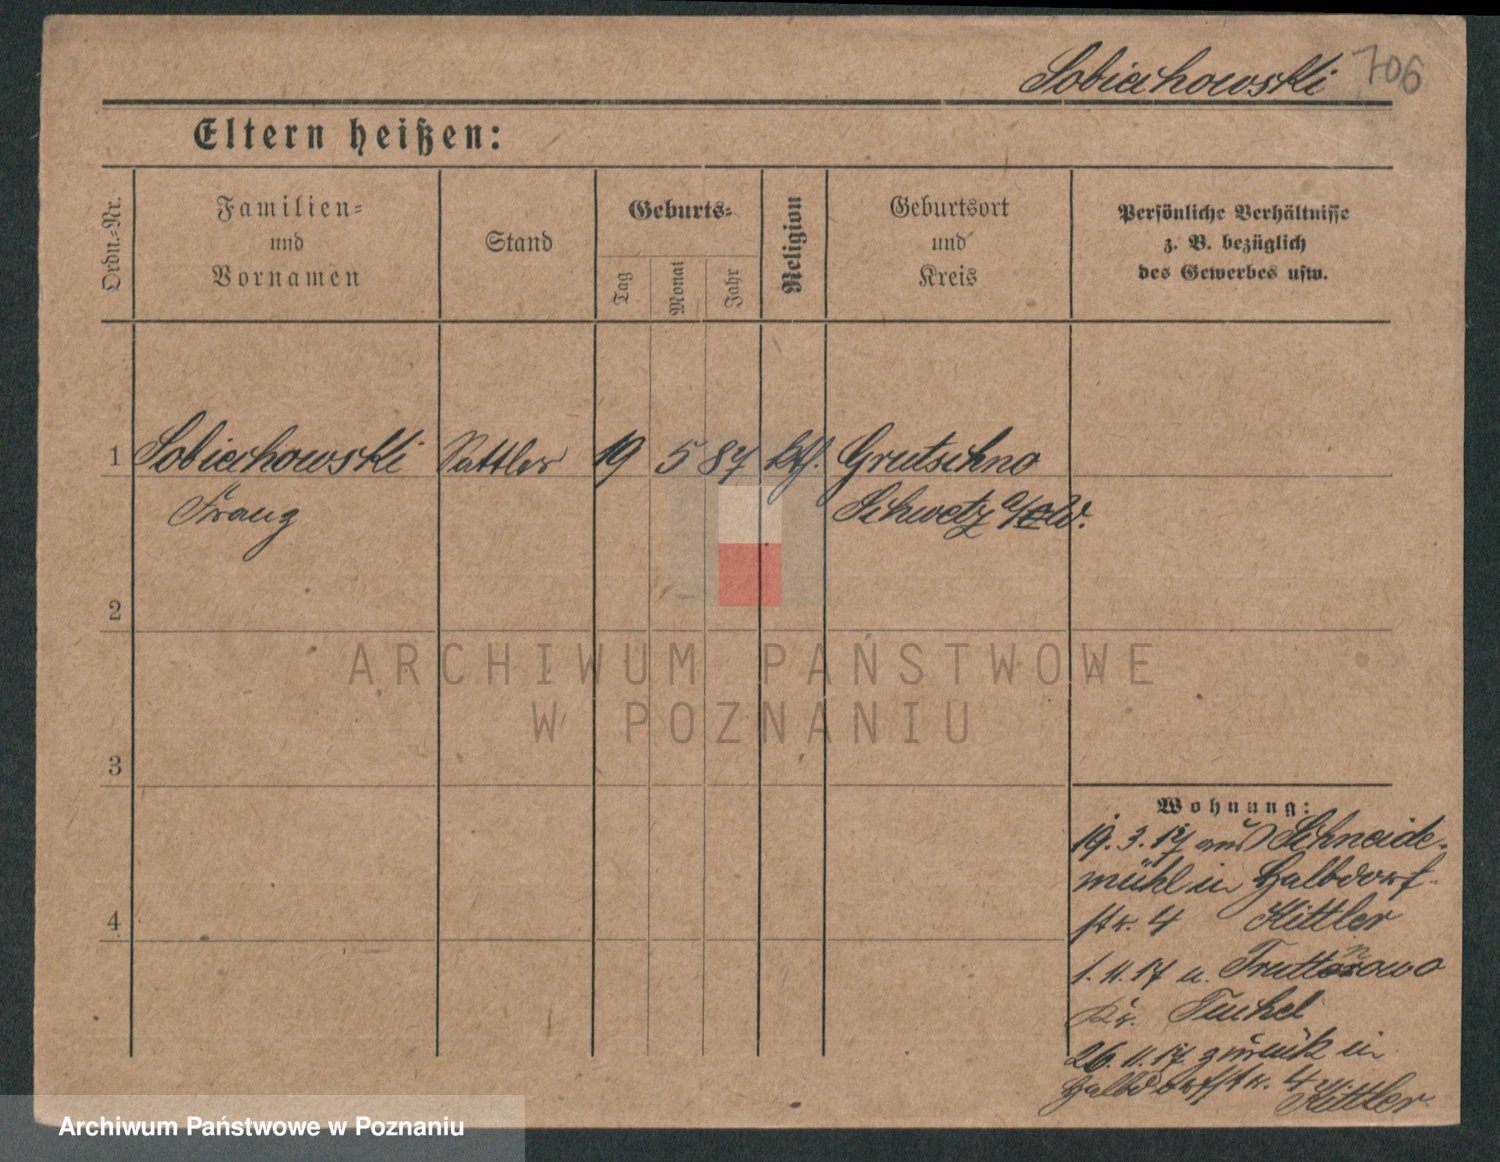 Sobiechowski 706
Eltern heißen:
Ordn.-Nr.
Familien-
und
Vornamen
Stand
Geburts-
Tag
Monat
Jahr
Religion
Geburtsort
und
Kreis
Persönliche Verhältnisse
z. B. bezüglich
des Gewerbes usw.
1 Sobiechowski Sattler 19 5 87 kth. Grutschno
Franz Schwetz a/W.
2
3
4
Wohnung:
19. 3. 17 aus Schneide-
mühl in Halbdorf-
str. 4 Kittler
1. 11. 17 n.
Kr. Tuchel
26. 11. 17 zurück in
Halbdorfstr. 4
Kittler
ARCHIWUM PAŃSTWOWE
W POZNANIU
Archiwum Państwowe w Poznaniu